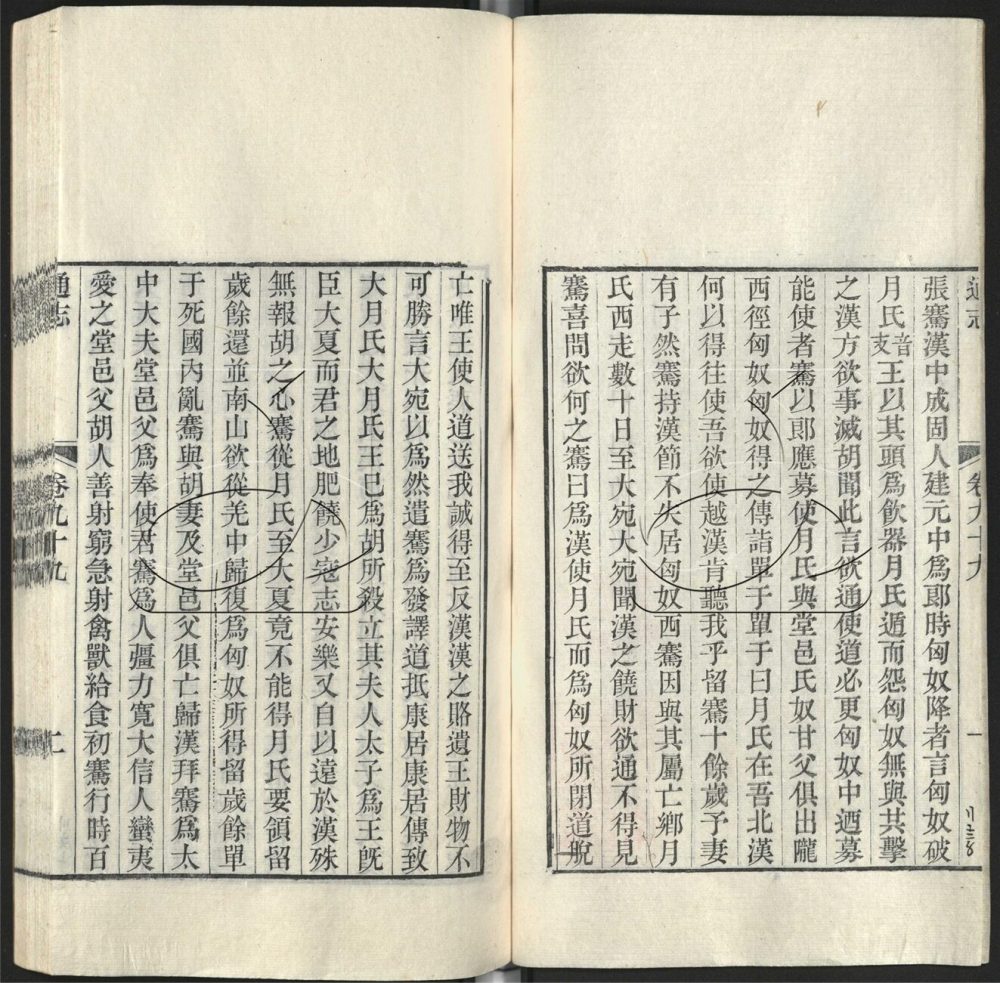 通志
卷九十九
一
張騫漢中成固人建元中爲郎時匈奴降者言匈奴破
月氏音支王以其頭爲飲器月氏遁而怨匈奴無與共擊
之漢方欲事滅胡聞此言欲通使道必更匈奴中迺募
能使者騫以郎應募使月氏與堂邑氏奴甘父俱出隴
西徑匈奴匈奴得之傳詣單于單于曰月氏在吾北漢
何以得往使吾欲使越漢肯聽我乎留騫十餘歲予妻
有子然騫持漢節不失居匈奴西騫因與其屬亡鄉月
氏西走數十日至大宛大宛聞漢之饒財欲通不得見
騫喜問欲何之騫曰爲漢使月氏而爲匈奴所閉道脫
亡唯王使人道送我誠得至反漢漢之賂遺王財物不
可勝言大宛以爲然遣騫爲發譯道抵康居康居傳致
大月氏大月氏王巳爲胡所殺立其夫人太子爲王旣
臣大夏而君之地肥饒少寇志安樂又自以遠於漢殊
無報胡之心騫從月氏至大夏竟不能得月氏要領留
歲餘還並南山欲從羌中歸復爲匈奴所得留歲餘單
于死國內亂騫與胡妻及堂邑父俱亡歸漢拜騫爲太
中大夫堂邑父爲奉使君騫爲人彊力寬大信人蠻夷
愛之堂邑父胡人善射窮急射禽獸給食初騫行時百
通志
卷九十九
二